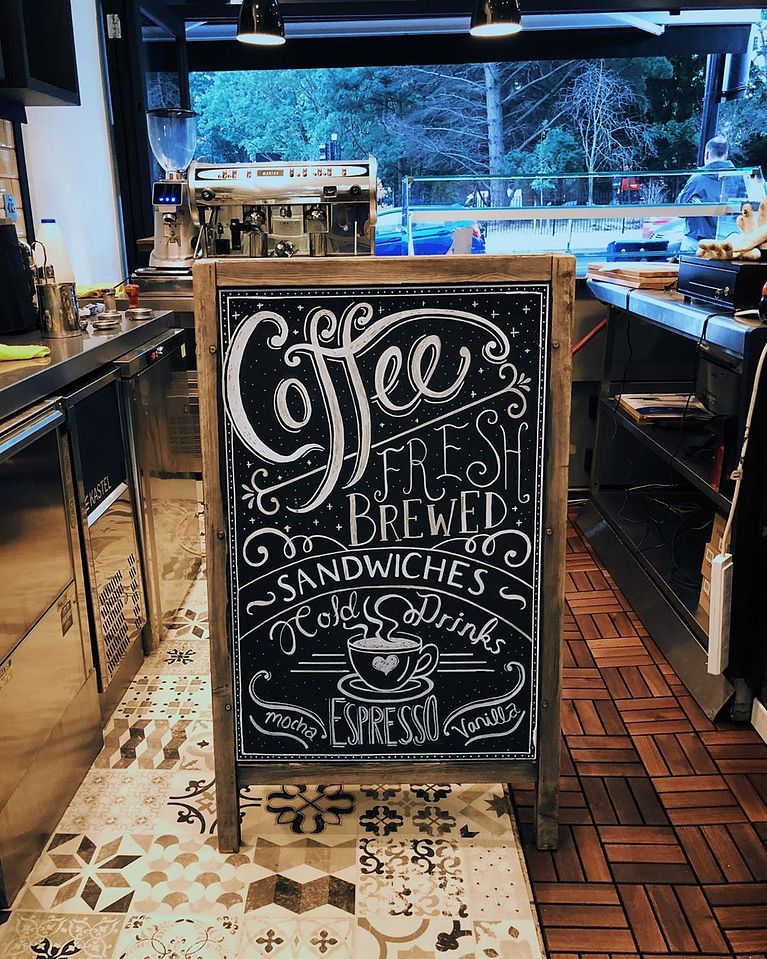 Coffee
FRESH
BREWED
SANDWICHES
Cold Drinks
ESPRESSO
mocha
Vanilla
KASTEL